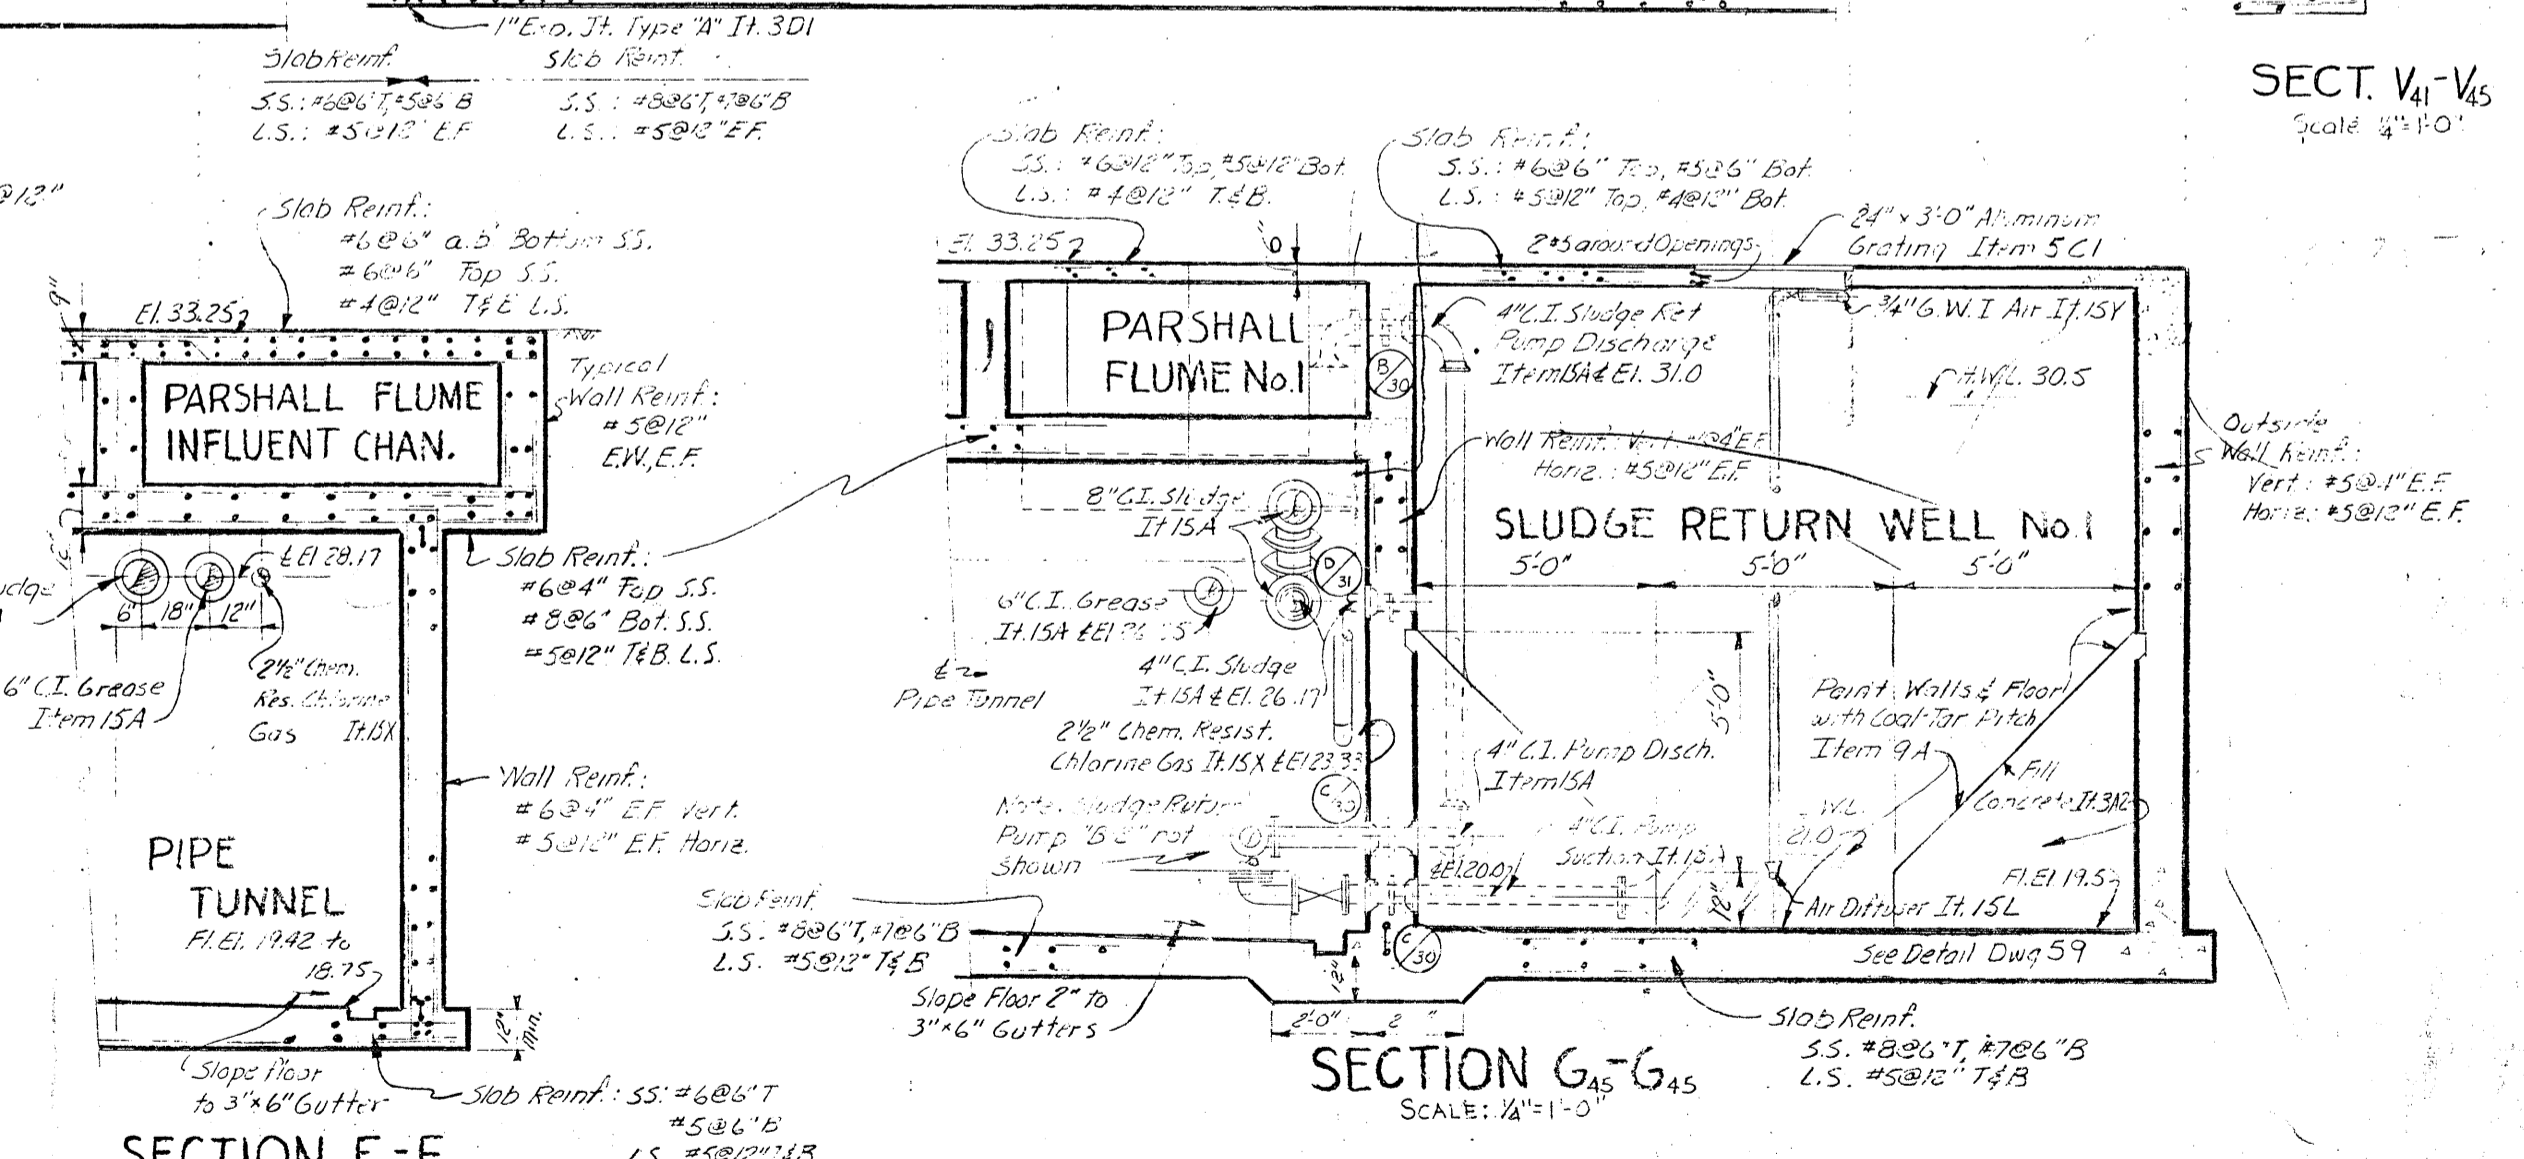 1" Exp. Jt. Type "A" It. 3D1
Slab Reinf.
S.S.: #6@6"T, #5@6"B
L.S.: #5@12" E.F.
Slab Reinf.
S.S.: #8@6"T, #7@6"B
L.S.: #5@12" E.F.
@12"
Slab Reinf.:
#6@6" a.b. Bottom S.S.
#6@6" Top S.S.
#4@12" L.S.
9"
El. 33.25
PARSHALL FLUME
INFLUENT CHAN.
Typical
Wall Reinf.:
#5@12"
E.W., E.F.
℄ El 28.17
6" 18" 12"
6" C.I. Grease
Item 15A
2½" Chem.
Res. Chlorine
Gas It. 15X
Slab Reinf.:
#6@4" Top S.S.
#8@6" Bot. S.S.
#5@12" T&B. L.S.
Wall Reinf.:
#6@4" E.F. Vert.
#5@12" E.F. Horiz.
PIPE
TUNNEL
Fl. El. 19.42 to
18.75
12"
Min.
Slope floor
to 3"x6" Gutter
Slab Reinf.: SS: #6@6"T
#5@6"B
L.S. #5@12" T&B
SECTION
SECT. V41-V45
Scale ¼"=1'-0"
Slab Reinf.:
S.S.: #6@12" Top, #5@12" Bot.
L.S.: #4@12" T.&B.
Slab Reinf.:
S.S.: #6@6" Top, #5@6" Bot.
L.S.: #5@12" Top, #4@12" Bot.
24" x 3'-0" Aluminum
Grating Item 5C1
El. 33.25
2 #5 around Openings
PARSHALL
FLUME No.1
B/30
4" C.I. Sludge Ret
Pump Discharge
Item 15A ℄ El. 31.0
¾" G.W.I Air It. 15Y
H.W.L. 30.5
Outside
Wall Reinf.:
Vert.: #5@4" E.F.
Horiz.: #5@12" E.F.
Wall Reinf.: Vert. @4" E.F.
Horiz.: #5@12" E.F.
8" C.I. Sludge
It 15A
SLUDGE RETURN WELL No.1
5'-0" 5'-0" 5'-0"
D/31
6" C.I. Grease
It. 15A ℄ El
℄
Pipe Tunnel
4" C.I. Sludge
It 15A ℄ El. 26.17
2½" Chem. Resist.
Chlorine Gas It. 15X ℄ El 23.33
5'-0"
Paint Walls & Floor
with Coal-Tar Pitch
Item 9A
4" C.I. Pump Disch.
Item 15A
Fill
Concrete It. 3A2
C/30
Note: Sludge Return
Pump not
shown
4" C.I. Pump
Suction It. 15A
W.L.
21.0
℄ El. 20.0
12"
Fl. El 19.5
Air Diffuser It. 15L
Slab Reinf.
S.S. #8@6"T, #7@6"B
L.S. #5@12" T&B
C/30
See Detail Dwg 59
Slope Floor 2" to
3"x6" Gutters
12"
2'-0"
Slab Reinf.
S.S. #8@6"T, #7@6"B
L.S. #5@12" T&B
SECTION G45-G45
SCALE: ¼"=1'-0"